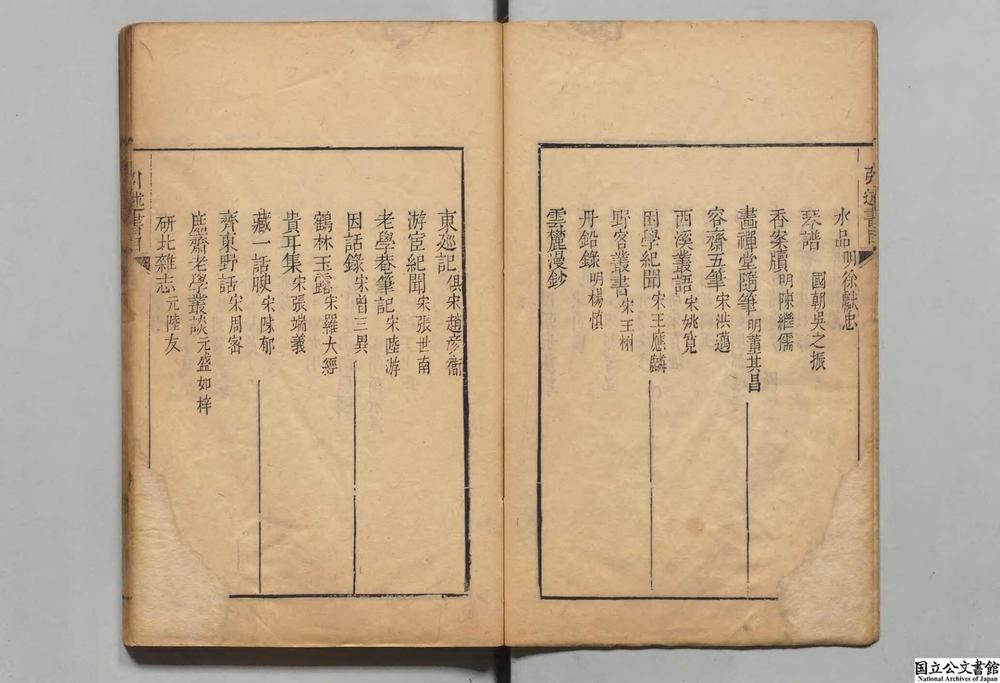 水品 明徐獻忠
琴譜 國朝吳之振
香案牘 明陳繼儒
畫禪堂隨筆 明董其昌
容齋五筆 宋洪邁
西溪叢語 宋姚寬
困學紀聞 宋王應麟
野客叢書 宋王楙
丹鉛錄 明楊慎
雲麓漫鈔
東巡記 俱宋趙彥衞
游宦紀聞 宋張世南
老學菴筆記 宋陸游
因話錄 宋曾三異
鶴林玉露 宋羅大經
貴耳集 宋張端義
藏一話腴 宋陳郁
齊東野話 宋周密
庶齋老學叢談 元盛如梓
研北雜志 元陸友
国立公文書館
National Archives of Japan